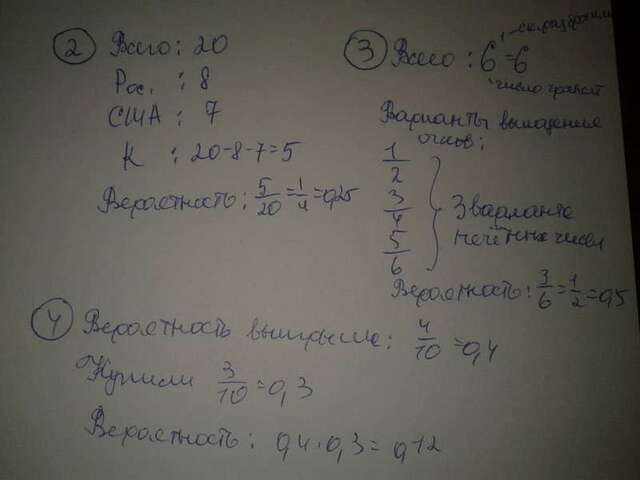 ② Всего: 20
Рос. : 8
США : 7
К : 20-8-7=5
Вероятность: 5/20 = 1/4 = 0,25
③ Всего : 6¹=6
число граней
Варианты выпадения
очков:
1
2
3
4
5
6
3 варианта
нечётных чисел
Вероятность: 3/6 = 1/2 = 0,5
④ Вероятность выигрыше: 4/10 = 0,4
Купили 3/10 = 0,3
Вероятность: 0,4·0,3 = 0,12